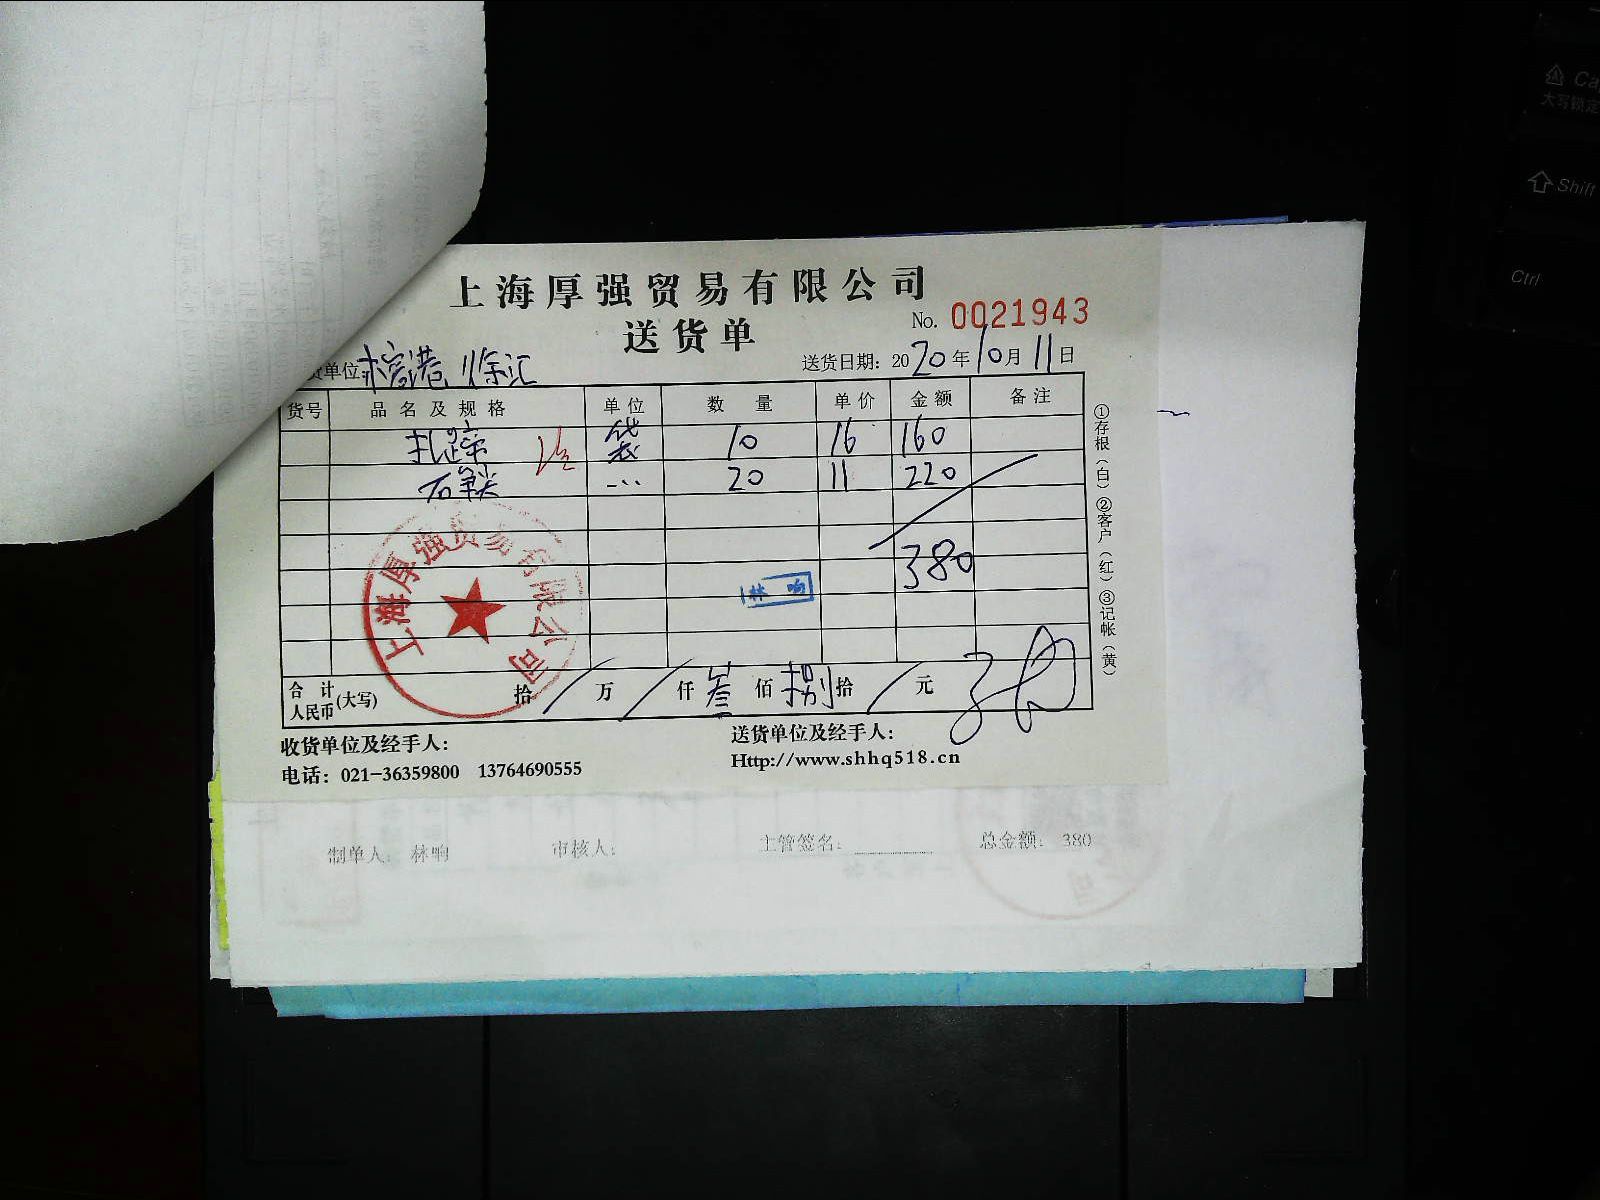 上海厚强贸易有限公司
送货单
No. 0021943
货单位: 徐汇
送货日期: 2020年10月11日
货号 品名及规格 单位 数量 单价 金额 备注
扎蹄 袋 10 16 160
20 11 220
380
林响
上海厚强贸易有限公司
合计人民币(大写) 拾/万/仟叁佰捌拾/元 380
①存根(白)②客户(红)③记帐(黄)
收货单位及经手人: 送货单位及经手人:
电话: 021-36359800 13764690555 Http://www.shhq518.cn
制单人: 林响 审核人: 主管签名: 总金额: 380
Ca
大写锁定
Shift
Ctrl